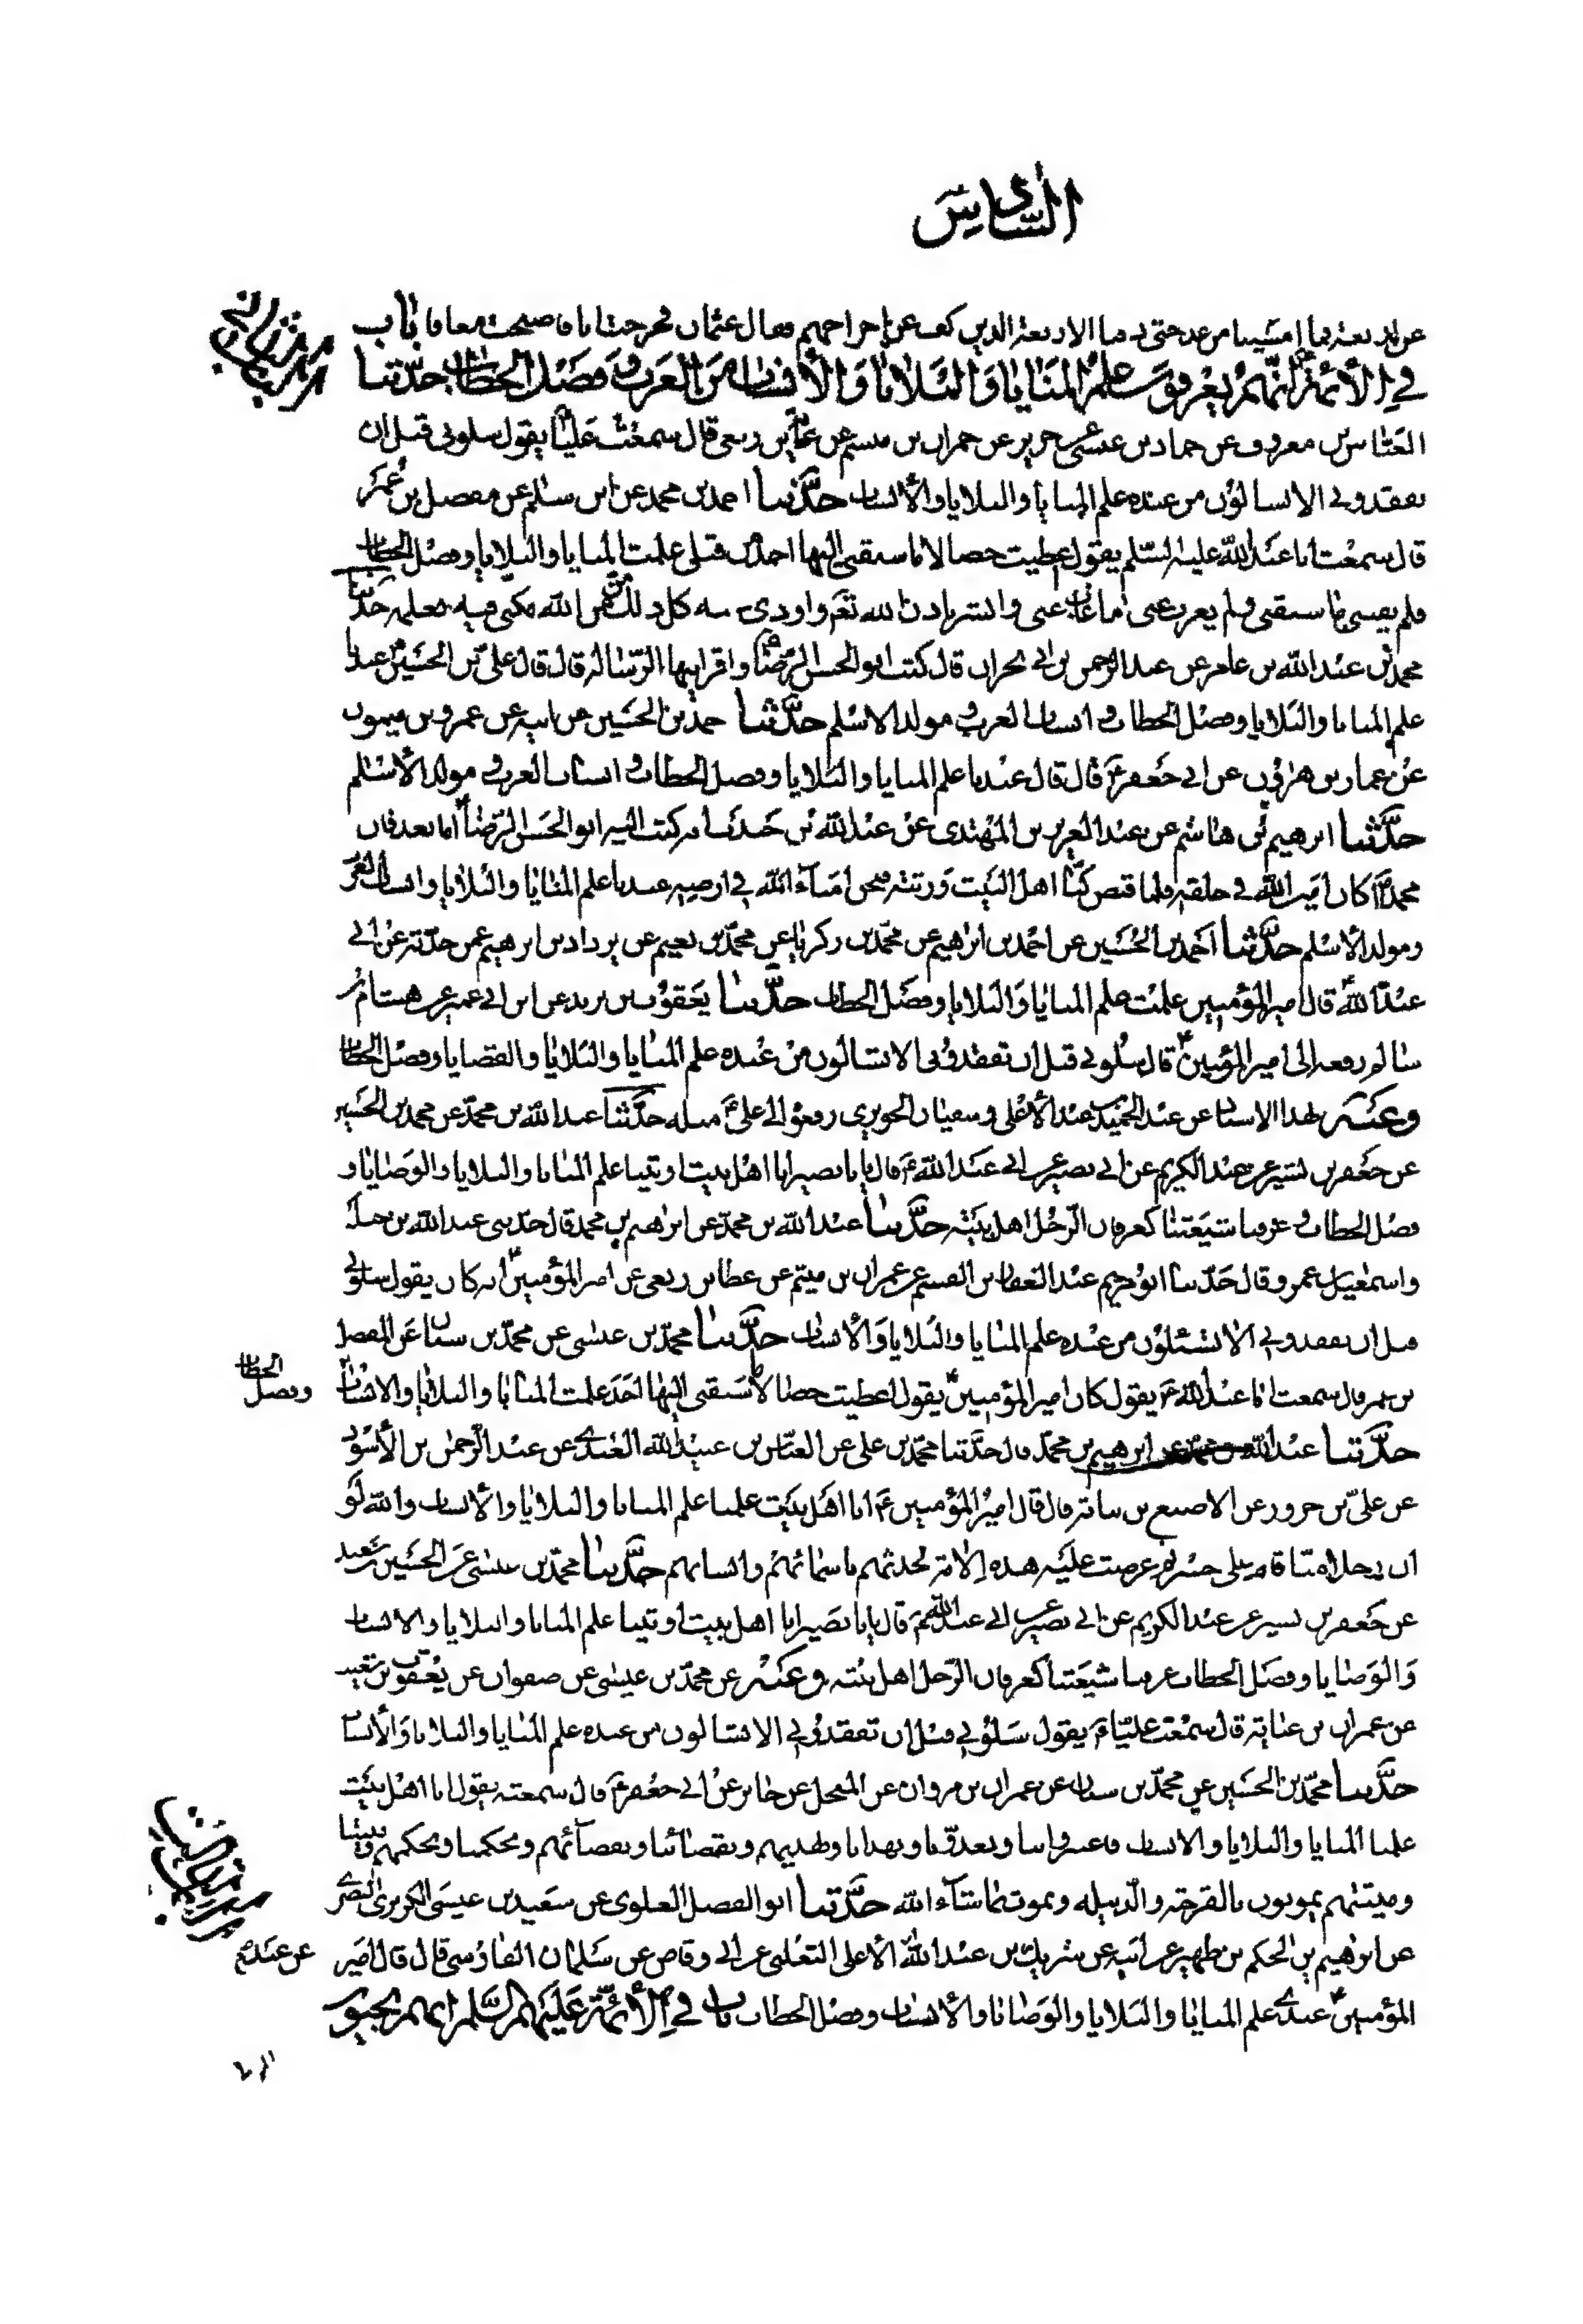 السادس
عن اربعة فما امسينا من غد حتى دفنا الاربعة الذين كف عن اخراجهم فقال عثمان فخرجت اصبحت معافا باب
في الأئمة انهم يعرفون علم المنايا والبلايا والأنساب من العرب وفصل الخطاب حدثنا
العباس بن معروف عن حماد بن عيسى عن حريز عن حمران بن ميثم عن عباية بن ربعي قال سمعت عليا يقول سلوني قبل ان
تفقدوني الا تسالون من عنده علم المنايا والبلايا والأنساب حدثنا احمد بن محمد عن ابن سنان عن مفضل بن عمر
قال سمعت ابا عبد الله عليه السلم يقول اعطيت خصالا ما سبقني اليها احد من قبلي علمت المنايا والبلايا وفصل الخطاب
فلم يفتني ما سبقني ولم يعزب عني ما غاب عني وابشر باذن الله تع واودي عنه كل ذلك من الله مكنني فيه بعلمه حدثنا
محمد بن عبد الله بن عامر عن عبد الرحمن بن ابي نجران قال كتب ابو الحسن الرضا واقرانيها الرسالة قال قال علي بن الحسين عندنا
علم المنايا والبلايا وفصل الخطاب وانساب العرب ومولد الاسلم حدثنا حمد بن الحسين عن ابيه عن عمرو بن ميمون
عن عمار بن هرون عن ابي جعفر قال قال عندنا علم المنايا والبلايا وفصل الخطاب وانساب العرب ومولد الأسلم
حدثنا ابرهيم بن هاشم عن عبد العزيز بن المهتدي عن عبد الله بن جندب كتب اليه ابو الحسن الرضا اما بعد فان
محمدا كان امين الله في خلقه فلما قبض كنا اهل البيت ورثته فنحن امناء الله في ارضه عندنا علم المنايا والبلايا وانساب العرب
ومولد الاسلم حدثنا احمد بن الحسين عن احمد بن ابراهيم عن محمد بن زكريا عن محمد بن نعيم عن يزداد بن ابرهيم عمن حدثه عن ابي
عبد الله قال امير المؤمنين علمت علم المنايا والبلايا وفصل الخطاب حدثنا يعقوب بن يزيد عن ابن ابي عمير عن هشام بن
سالم رفعه الى امير المؤمنين قال سلوني قبل ان تفقدوني الا تسالون من عنده علم المنايا والبلايا والقضايا وفصل الخطاب
وعنه بهذا الاسناد عن عبد الحميد بن عبد الأعلى وسفيان الحويري رفعوه الى علي مثله حدثنا عبد الله بن محمد عن محمد بن الحسين
عن جعفر بن بشير عن عبد الكريم عن ابي بصير عن ابي عبد الله قال يا با بصير انا اهل بيت اوتينا علم المنايا والبلايا والوصايا و
فصل الخطاب وعرفنا شيعتنا كعرفان الرجل اهل بيته حدثنا عبد الله بن محمد عن ابراهيم بن محمد قال حدثني عبد الله بن جبلة
واسمعيل بن عمرو قال حدثنا ابو مريم عبد الغفار بن القسم عن عمران بن ميثم عن عطا بن ربعي عن امير المؤمنين انه كان يقول سلوني
قبل ان تفقدوني الا تسئلون من عنده علم المنايا والبلايا والأنساب حدثنا محمد بن عيسى عن محمد بن سنان عن المفضل
بن عمر قال سمعت ابا عبد الله يقول كان امير المؤمنين يقول اعطيت خصالا لم يسبقني اليها احد علمت المنايا والبلايا والانساب وفصل الخطاب
حدثنا عبد الله بن محمد عن ابرهيم بن محمد قال حدثنا محمد بن علي عن العباس بن عبيد الله العبدي عن عبد الرحمن بن الأسود
عن علي بن حزور عن الاصبغ بن نباتة قال قال امير المؤمنين انا اهل بيت علمنا علم المنايا والبلايا والأنساب والله لو
ان رجلا منا قام على جسر ثم عرضت عليه هذه الامة لحدثهم باسمائهم وانسابهم حدثنا محمد بن عيسى عن الحسين بن سعيد
عن جعفر بن بشير عن عبد الكريم عن ابي بصير عن ابي عبد الله قال يا با بصير انا اهل بيت اوتينا علم المنايا والبلايا والانساب
والوصايا وفصل الخطاب عرفنا شيعتنا كعرفان الرجل اهل بيته وعنه عن محمد بن عيسى عن صفوان عن يعقوب بن شعيب
عن عمران عن عباية قال سمعت عليا يقول سلوني قبل ان تفقدوني الا تسالون من عنده علم المنايا والبلايا والأنساب
حدثنا محمد بن الحسين عن محمد بن سنان عن عمران بن مروان عن المنخل عن جابر عن ابي جعفر قال سمعته يقول انا اهل بيت
علمنا المنايا والبلايا والانساب فاعتبروا بنا وبعدونا وبهدانا وبهديهم وبقضائنا وبقضائهم وبحكمنا وبحكمهم وميتنا
وميتتهم يموتون بالقرحة والدبيلة ونموت بما شاء الله حدثنا ابو الفضل العلوي عن سعيد بن عيسى الكريزي البصري
عن ابراهيم بن الحكم بن ظهير عن ابيه عن شريك بن عبد الله عن عبد الأعلى التغلبي عن ابي وقاص عن سلمان الفارسي قال قال امير
المؤمنين عندي علم المنايا والبلايا والوصايا والأنساب وفصل الخطاب باب في الأئمة عليهم السلم انهم يحيون